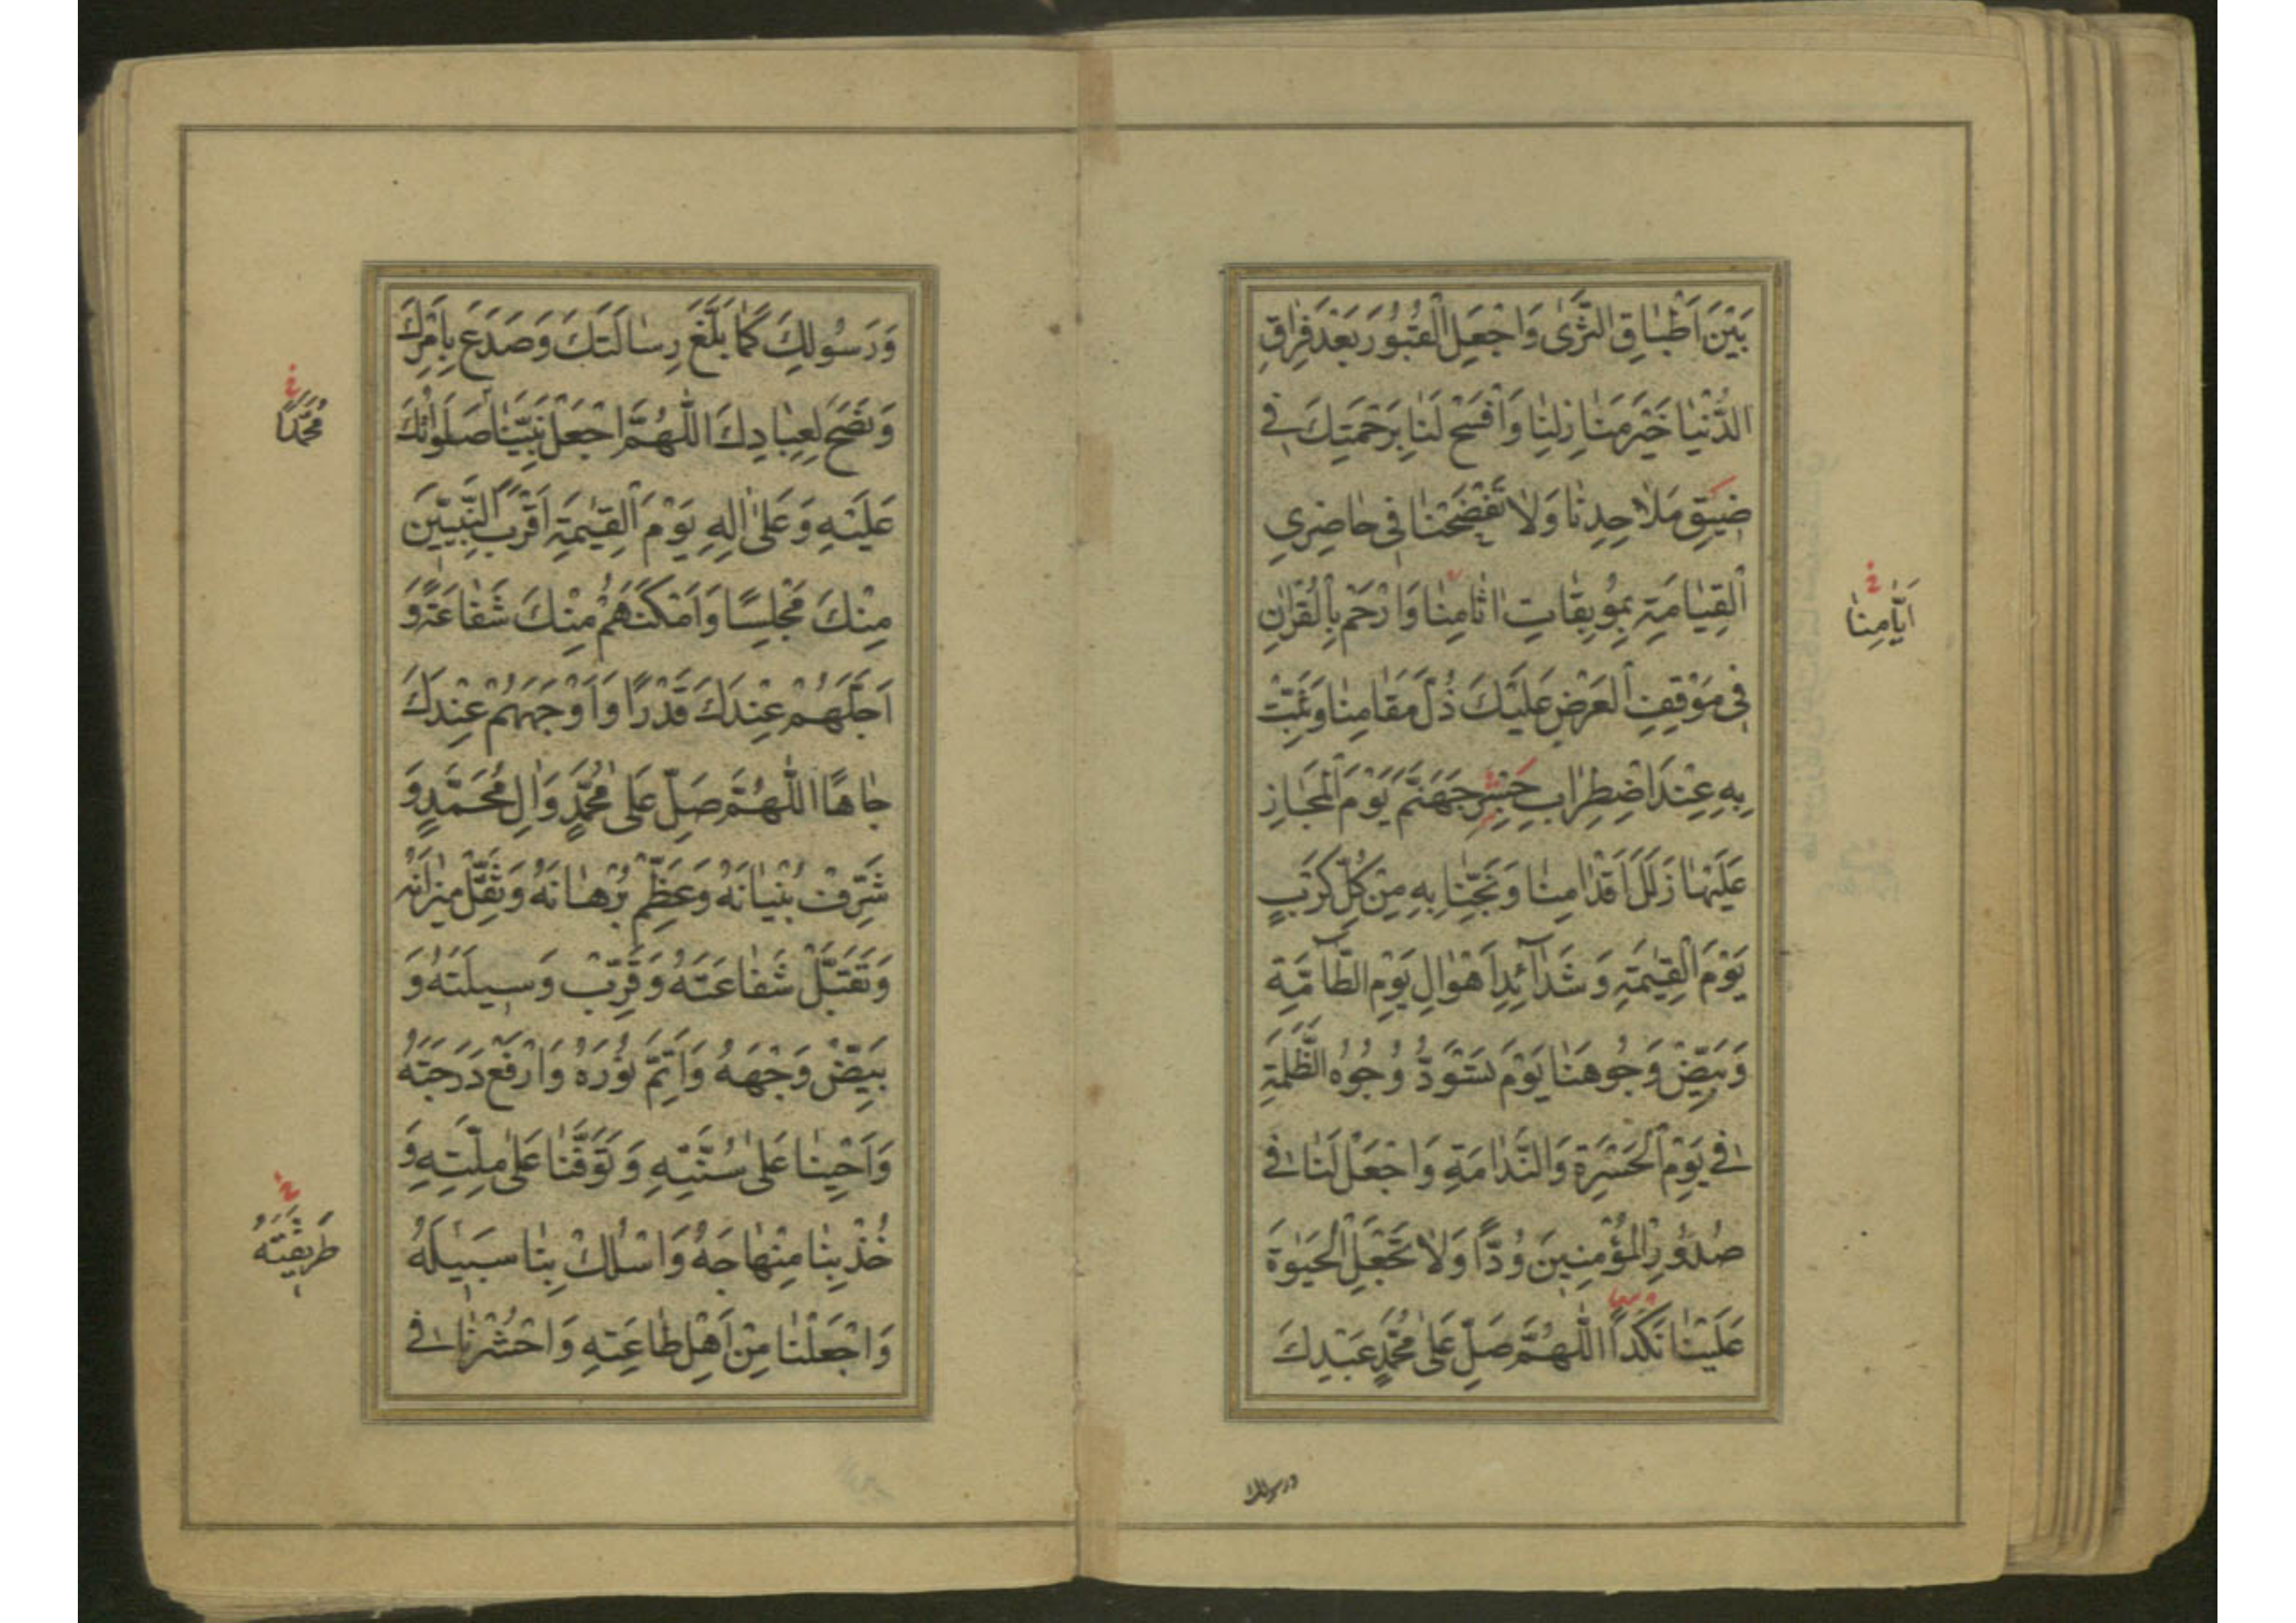 بَيْنَ اَطْبٰاقِ الثَّرٰى وَاجْعَلِ الْقُبُورَ بَعْدَ فِرٰاقِ
الدُّنْيٰا خَيْرَ مَنٰازِلِنٰا وَافْسَحْ لَنٰا بِرَحْمَتِكَ فى
ضيقِ مَلاٰحِدِنٰا وَلاٰ تَفْضَحْنٰا فى حٰاضِرِي
الْقِيٰامَةِ بِمُوبِقٰاتِ اٰثٰامِنٰا وَارْحَمْ بِالْقُرْاٰنِ
فى مَوْقِفِ الْعَرْضِ عَلَيْكَ ذُلَّ مَقٰامِنٰا وَثَبِّتْ
بِهِ عِنْدَ اضْطِرٰابِ جَسْرِ جَهَنَّمَ يَوْمَ الْمَجٰازِ
عَلَيْهٰا زَلَلَ اَقْدٰامِنٰا وَنَجِّنٰا بِهِ مِنْ كُلِّ كَرْبٍ
يَوْمَ الْقِيٰمَةِ وَ شَدٰٓائِدِ اَهْوٰالِ يَوْمِ الطّٰٓامَّةِ
وَبَيِّضْ وُجُوهَنٰا يَوْمَ تَسْوَدُّ وُجُوهُ الظَّلَمَةِ
فى يَوْمِ الْحَسْرَةِ وَالنَّدٰامَةِ وَاجْعَلْ لَنٰا فى
صُدُورِ الْمُؤْمِنينَ وُدًّا وَلاٰ تَجْعَلِ الْحَيٰوةَ
عَلَيْنٰا نَكَدًا اَللّٰهُمَّ صَلِّ عَلىٰ مُحَمَّدٍ عَبْدِكَ
اَيّٰامِنٰا
ورسولك
وَرَسُولِكَ كَمٰا بَلَّغَ رِسٰالَتَكَ وَصَدَعَ بِاَمْرِكَ
وَنَصَحَ لِعِبٰادِكَ اَللّٰهُمَّ اجْعَلْ نَبِيَّنٰا صَلَوٰاتُكَ
عَلَيْهِ وَعَلىٰ اٰلِهِ يَوْمَ الْقِيٰمَةِ اَقْرَبَ النَّبِيّينَ
مِنْكَ مَجْلِسًا وَاَمْكَنَهُمْ مِنْكَ شَفٰاعَةً وَ
اَجَلَّهُمْ عِنْدَكَ قَدْرًا وَاَوْجَهَهُمْ عِنْدَكَ
جٰاهًا اَللّٰهُمَّ صَلِّ عَلىٰ مُحَمَّدٍ وَاٰلِ مُحَمَّدٍ وَ
شَرِّفْ بُنْيٰانَهُ وَعَظِّمْ بُرْهٰانَهُ وَثَقِّلْ ميزٰانَهُ
وَتَقَبَّلْ شَفٰاعَتَهُ وَقَرِّبْ وَسيلَتَهُ وَ
بَيِّضْ وَجْهَهُ وَاَتِمَّ نُورَهُ وَارْفَعْ دَرَجَتَهُ
وَاَحْيِنٰا عَلىٰ سُنَّتِهِ وَتَوَفَّنٰا عَلىٰ مِلَّتِهِ وَ
خُذْ بِنٰا مِنْهٰاجَهُ وَاسْلُكْ بِنٰا سَبيلَهُ
وَاجْعَلْنٰا مِنْ اَهْلِ طٰاعَتِهِ وَاحْشُرْنٰا فى
مُحَمَّدًا
طَريقَتَهُ